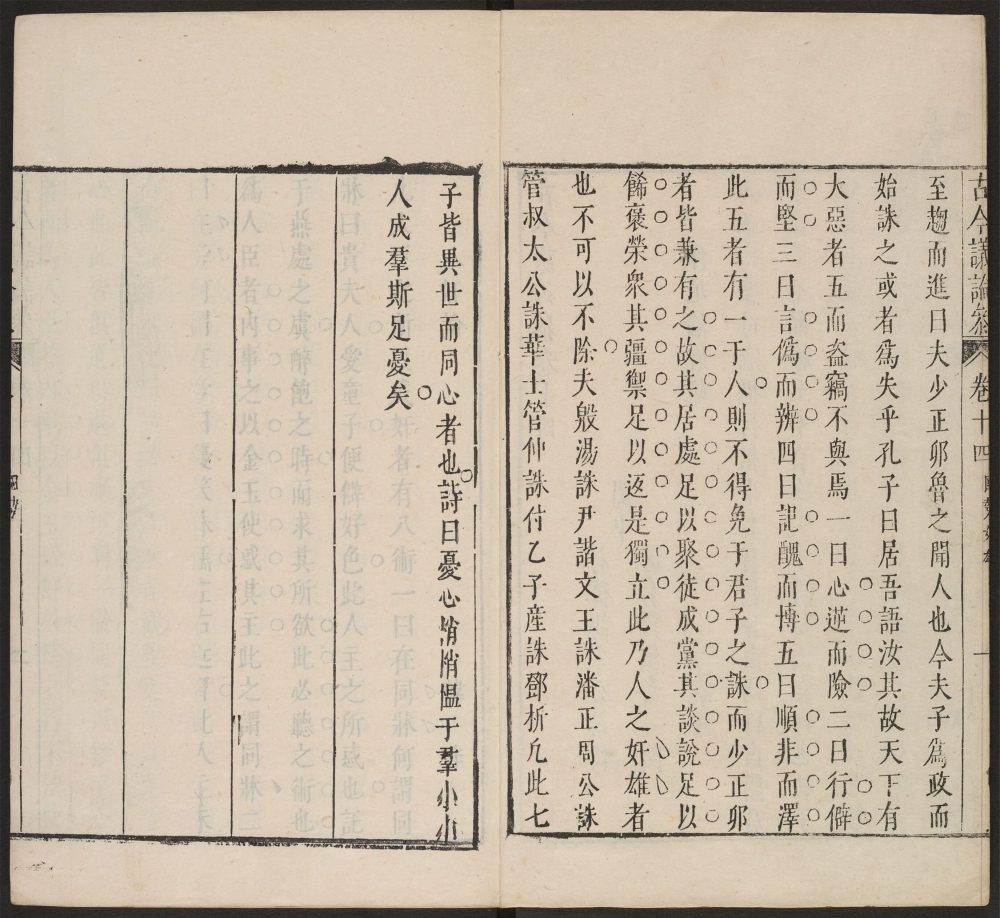 古今議論參 卷十四 一
至趨而進曰夫少正卯魯之聞人也今夫子爲政而
始誅之或者爲失乎孔子曰居吾語汝其故天下有
大惡者五而盗竊不與焉一曰心逆而險二曰行僻
而堅三曰言僞而辨四曰記醜而博五曰順非而澤
此五者有一于人則不得免于君子之誅而少正卯
者皆兼有之故其居處足以聚徒成黨其談說足以
餙褒榮衆其疆禦足以返是獨立此乃人之奸雄者
也不可以不除夫殷湯誅尹諧文王誅潘正周公誅
管叔太公誅華士管仲誅付乙子產誅鄧析凢此七
子皆異世而同心者也詩曰憂心悄悄愠于羣小小
人成羣斯足憂矣